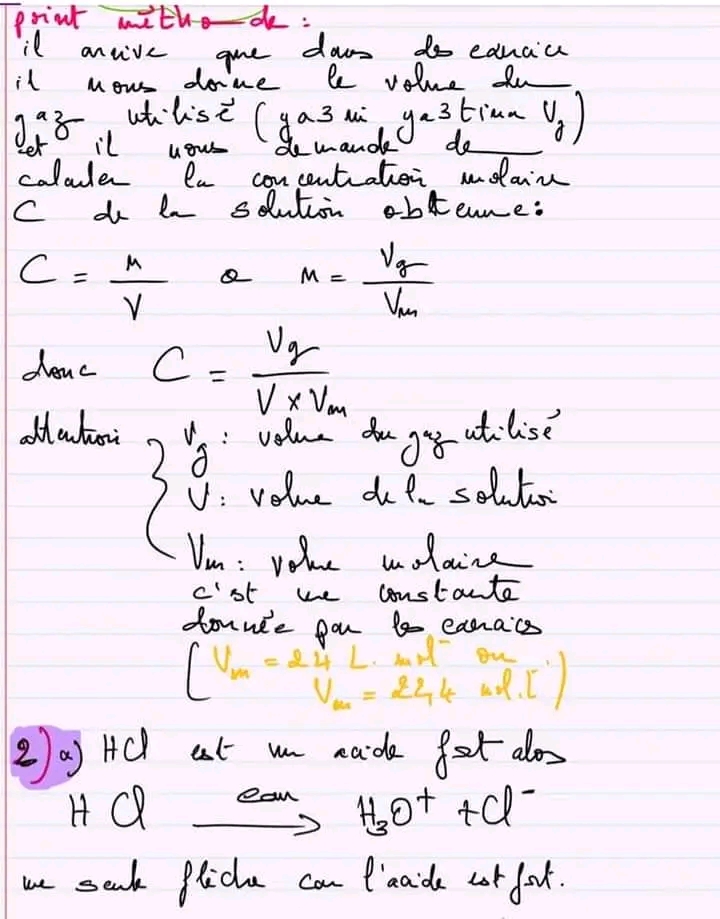 point méthode :
il arrive que dans des exercice
il nous donne le volume du
gaz utilisé (ya3ni ya3tina Vg)
et il nous demande de
calculer la concentration molaire
C de la solution obtenue :
C = n / V o n = Vg / Vm
donc C = Vg / (V × Vm)
attention { Vg : volume du gaz utilisé
V : volume de la solution
Vm : volume molaire
c'est une constante
donnée par les exercices
[ Vm = 24 L. mol⁻ ou
Vm = 22,4 mol.L⁻ )
2) a) HCl est un acide fort alos
H Cl —eau→ H₃O⁺ + Cl⁻
une seule flèche car l'acide est fort.